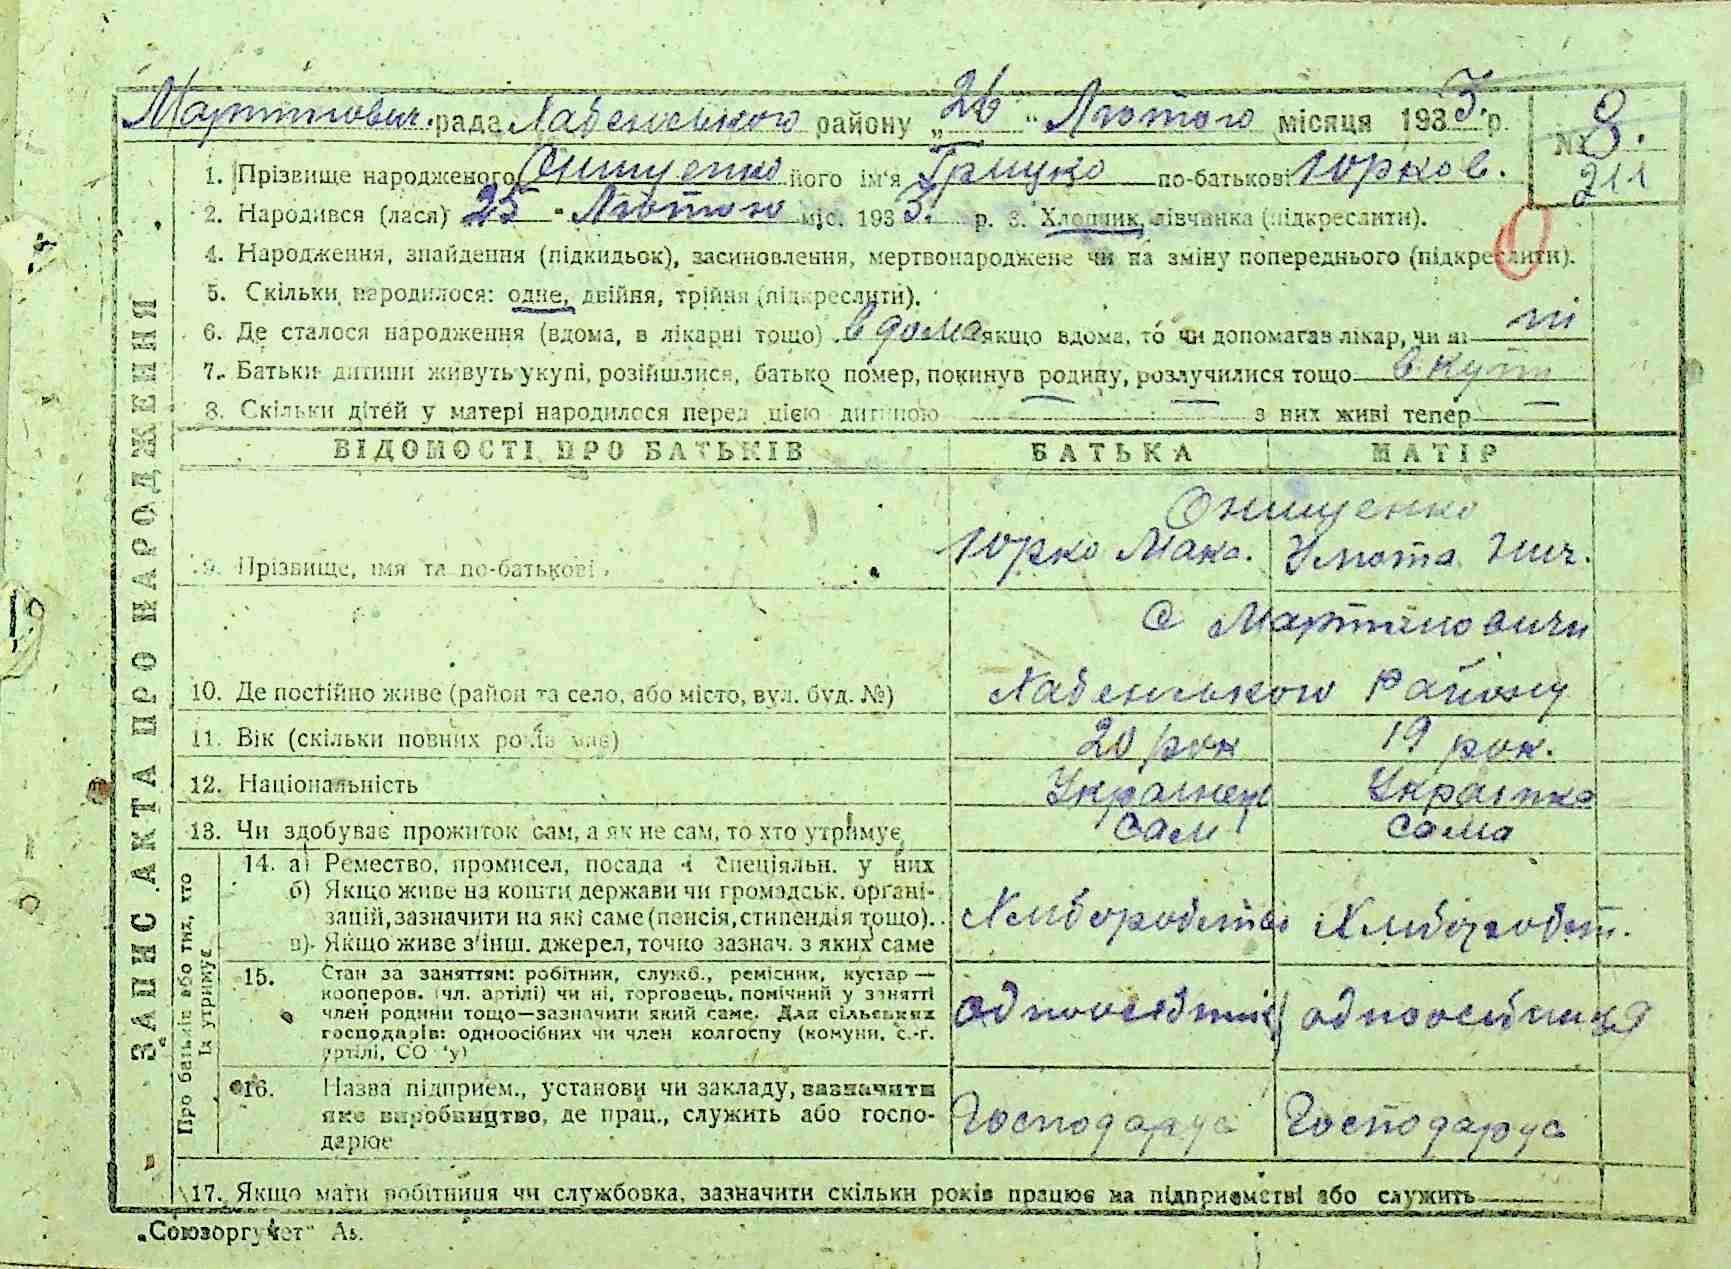 Мартинович. рада Хабенського району „26" Лютого місяця 1933 р. № 8.
211
1. Прізвище народженого Онищенко його ім'я Грицко по-батькові Юрков.
2. Народився (лася) 25 " Лютого міс. 1933. р. 3. Хлопчик, дівчинка (підкреслити).
4. Народження, знайдення (підкидьок), засиновлення, мертвонароджене чи на зміну попереднього (підкреслити).
5. Скільки народилося: одне, двійня, трійня (підкреслити).
6. Де сталося народження (вдома, в лікарні тощо) вдома якщо вдома, то чи допомагав лікар, чи ні ні
7. Батьки дитини живуть укупі, розійшлися, батько помер, покинув родину, розлучилися тощо вкупі
8. Скільки дітей у матері народилося перед цією дитиною — з них живі тепер —
ЗАПИС АКТА ПРО НАРОДЖЕННЯ
ВІДОМОСТІ ПРО БАТЬКІВ БАТЬКА МАТІР
Онищенко
9. Прізвище, імя та по-батькові Юрко Мака. Ульота Нич.
с Мартиновичи
10. Де постійно живе (район та село, або місто, вул. буд. №) Хабенського району
11. Вік (скільки повних років має) 20 рок 19 рок.
12. Національність Украінец Украінка
13. Чи здобуває прожиток сам, а як не сам, то хто утримує сам сама
Про батьків або тих, хто їх утримує
14. а) Ремество, промисел, посада і спеціяльн. у них
б) Якщо живе на кошти держави чи громадськ. органі-
зацій, зазначити на які саме (пенсія, стипендія тощо). Хліборобство Хліборобст.
в) Якщо живе з інш. джерел, точно зазнач. з яких саме
15. Стан за заняттям: робітник, служб., ремісник, кустар —
кооперов. (чл. артілі) чи ні, торговець, помічний у занятті
член родини тощо—зазначити який саме. Для сільських одноосібник одноосібниця
господарів: одноосібних чи член колгоспу (комуни, с.-г.
артілі, СОЗ'у)
16. Назва підприєм., установи чи закладу, зазначити
яке виробництво, де прац., служить або госпо- Господарує Господарує
дарює
17. Якщо мати робітниця чи службовка, зазначити скільки років працює на підприємстві або служить
„Союзоргучет"